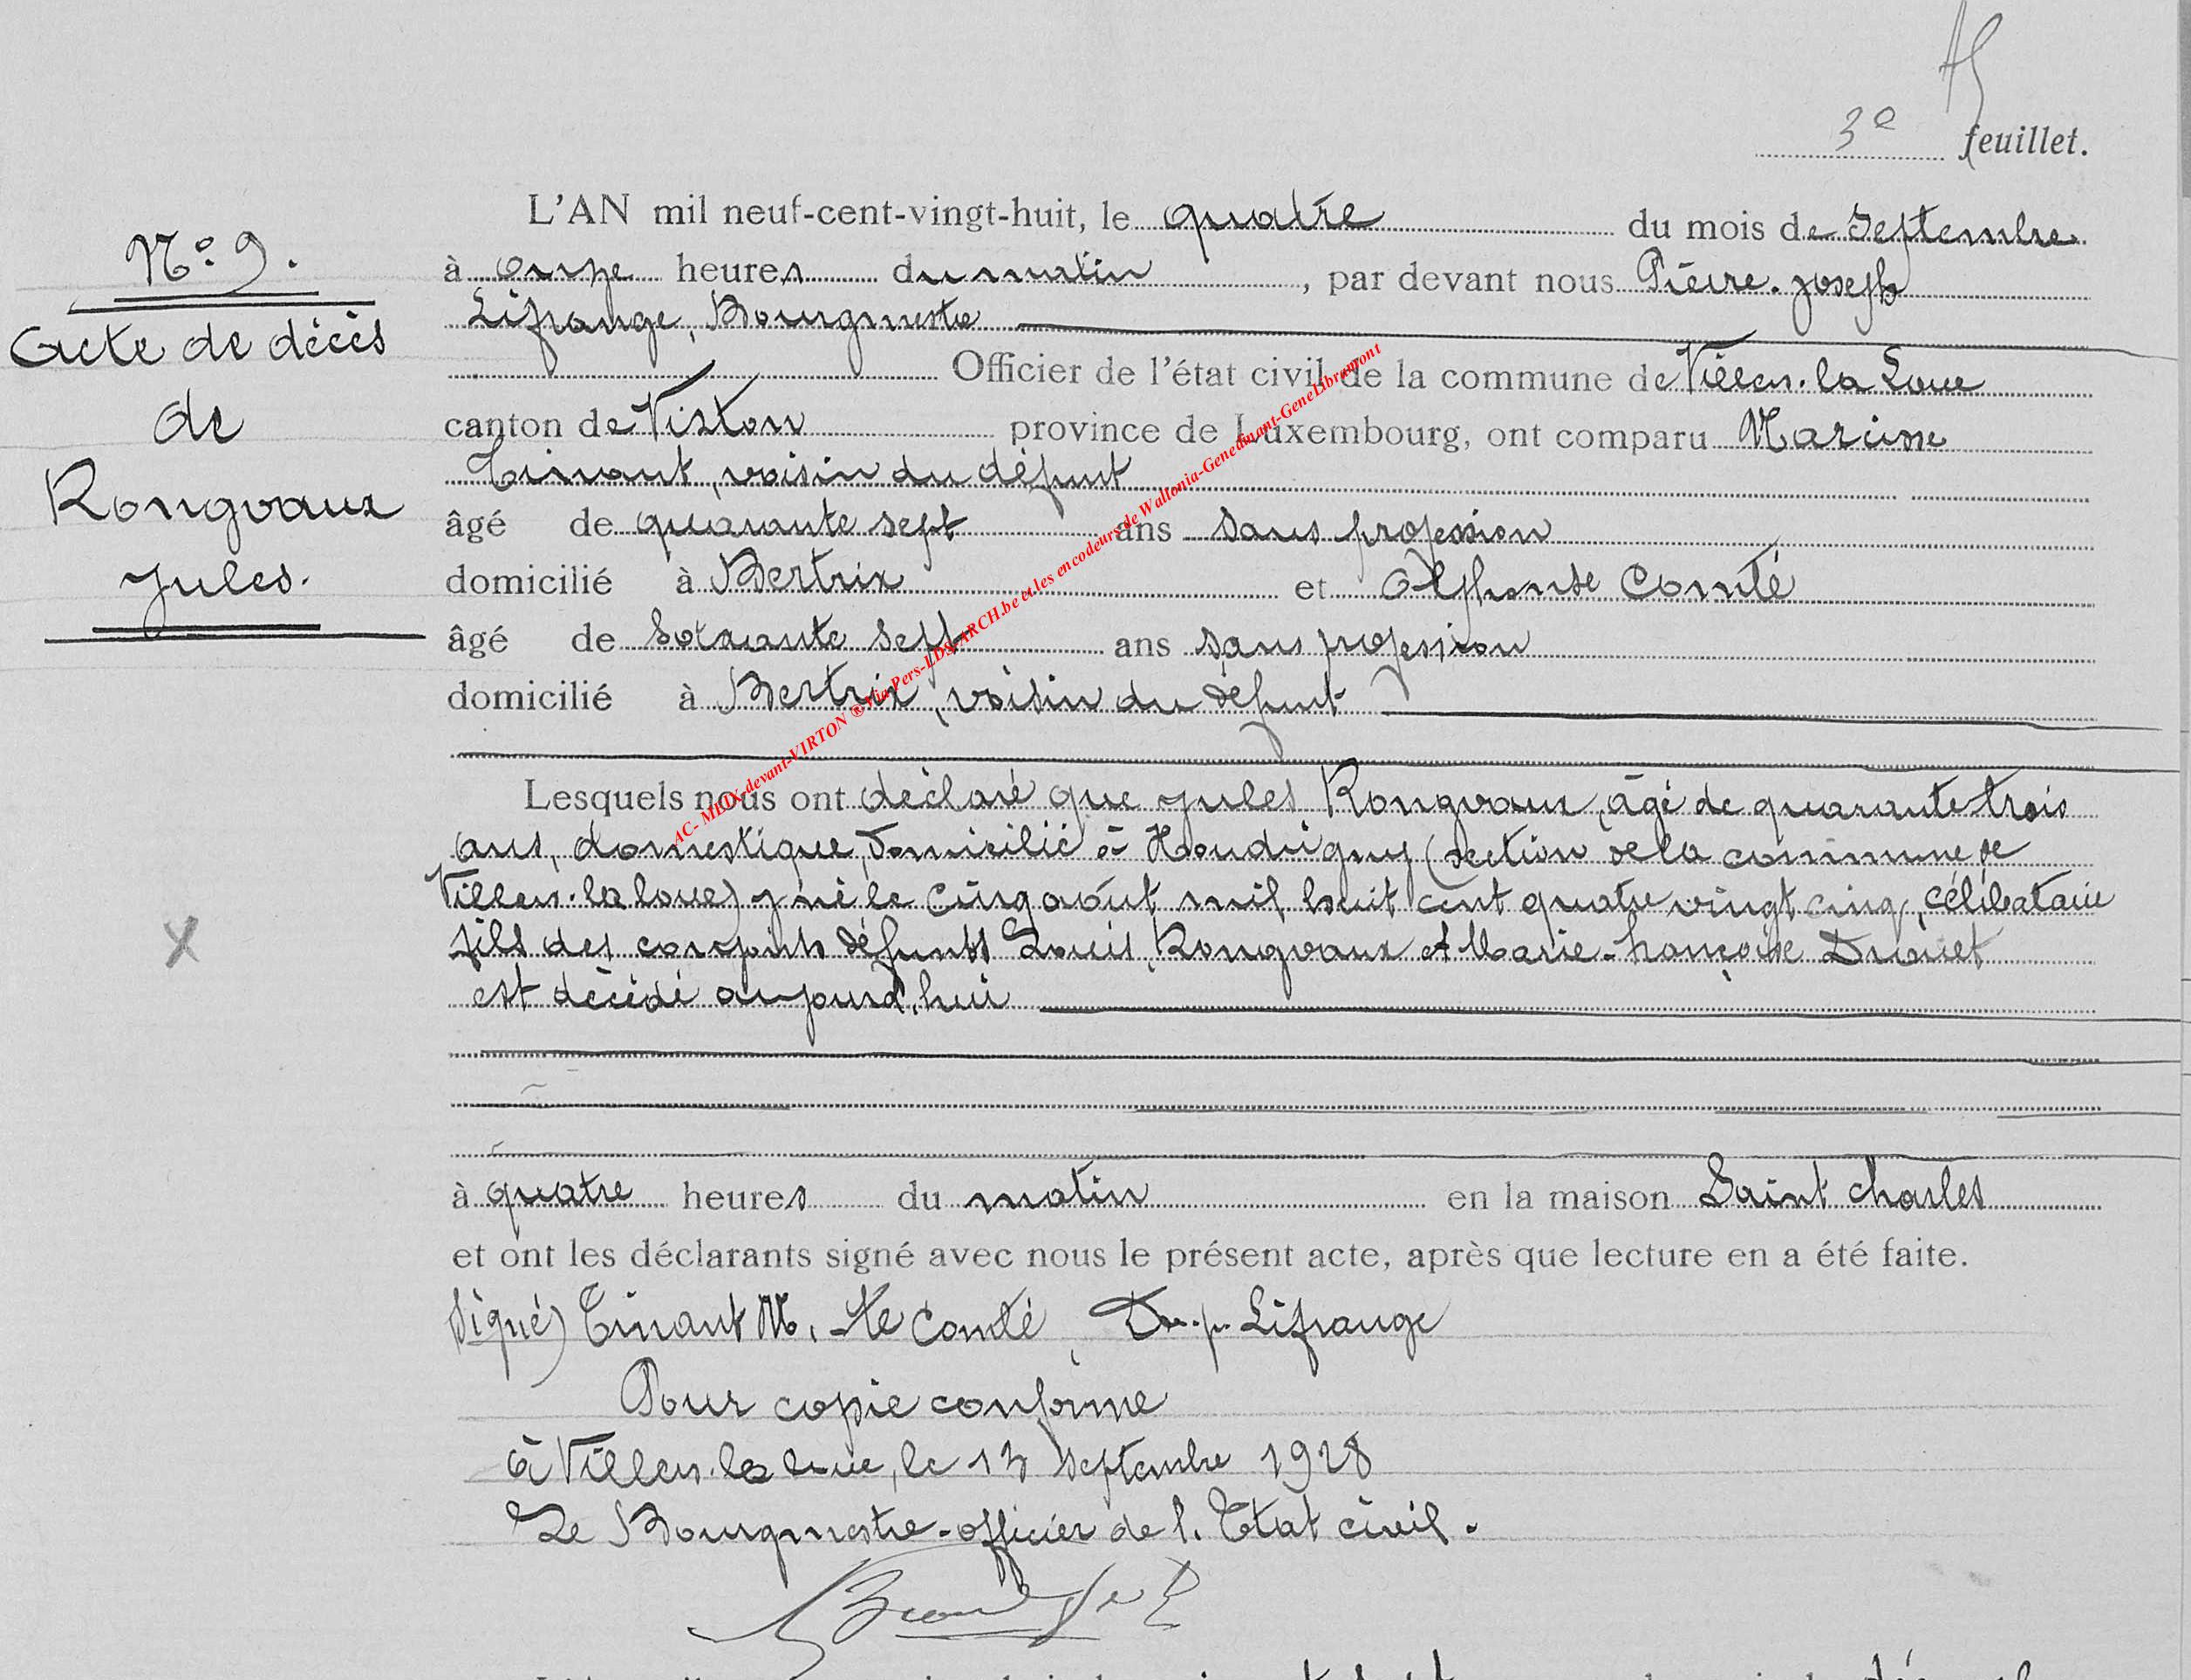 3e feuillet.
L'AN mil neuf-cent-vingt-huit, le quatre du mois de Septembre
N° 9.
à onze heures du matin, par devant nous Pierre-Joseph
Lifrange, Bourgmestre
Acte de décès
Officier de l'état civil de la commune de Villers-la-Loue
de
canton de Virton province de Luxembourg, ont comparu
Tinant, voisin du défunt
Rongvaux
âgé de quarante sept ans sans profession
Jules.
domicilié à Bertrix et Alphonse Comté
âgé de soixante sept ans sans profession
domicilié à Bertrix, voisin du défunt
Lesquels nous ont déclaré que Jules Rongvaux, âgé de quarante trois
ans, domestique, domicilié à Houdrigny (section de la commune de
Villers-la-loue) y né le cinq août mil huit cent quatre vingt cinq, célibataire
fils des conjoints défunts Louis Rongvaux et Marie-Françoise
est décédé aujourd'hui
X
à quatre heures du matin en la maison Saint Charles
et ont les déclarants signé avec nous le présent acte, après que lecture en a été faite.
Signé) Tinant M. Comté, Lifrange
Pour copie conforme
à Villers-la-loue, le 13 Septembre 1928
Le Bourgmestre-officier de l'Etat civil.
AC- MEIX-devant-VIRTON ® Via Pers-LDS-ARCH.be et les encodeurs de Wallonia-Genedinant-GeneLibramont